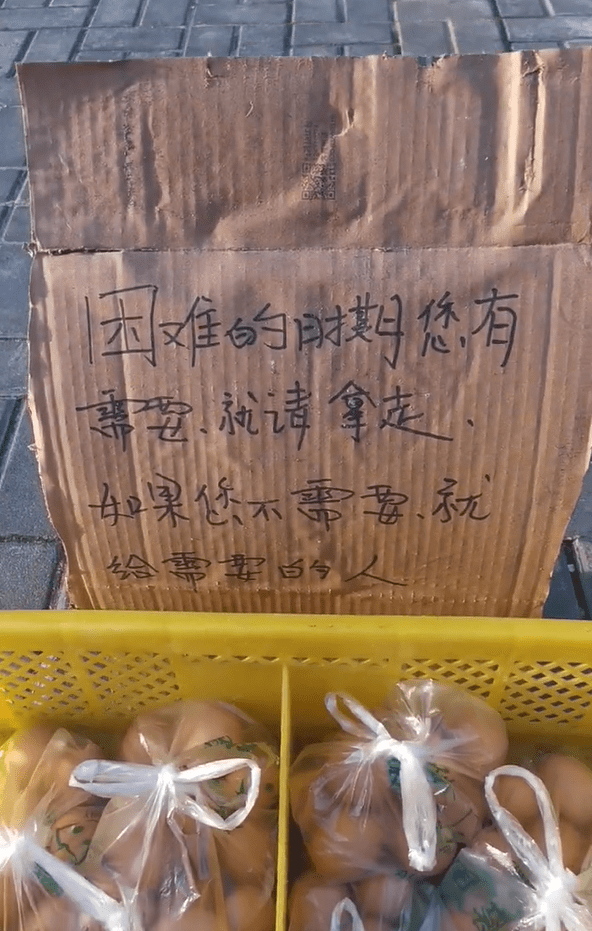 困难的时期您有
需要、就请拿走、
如果您不需要、就
给需要的人